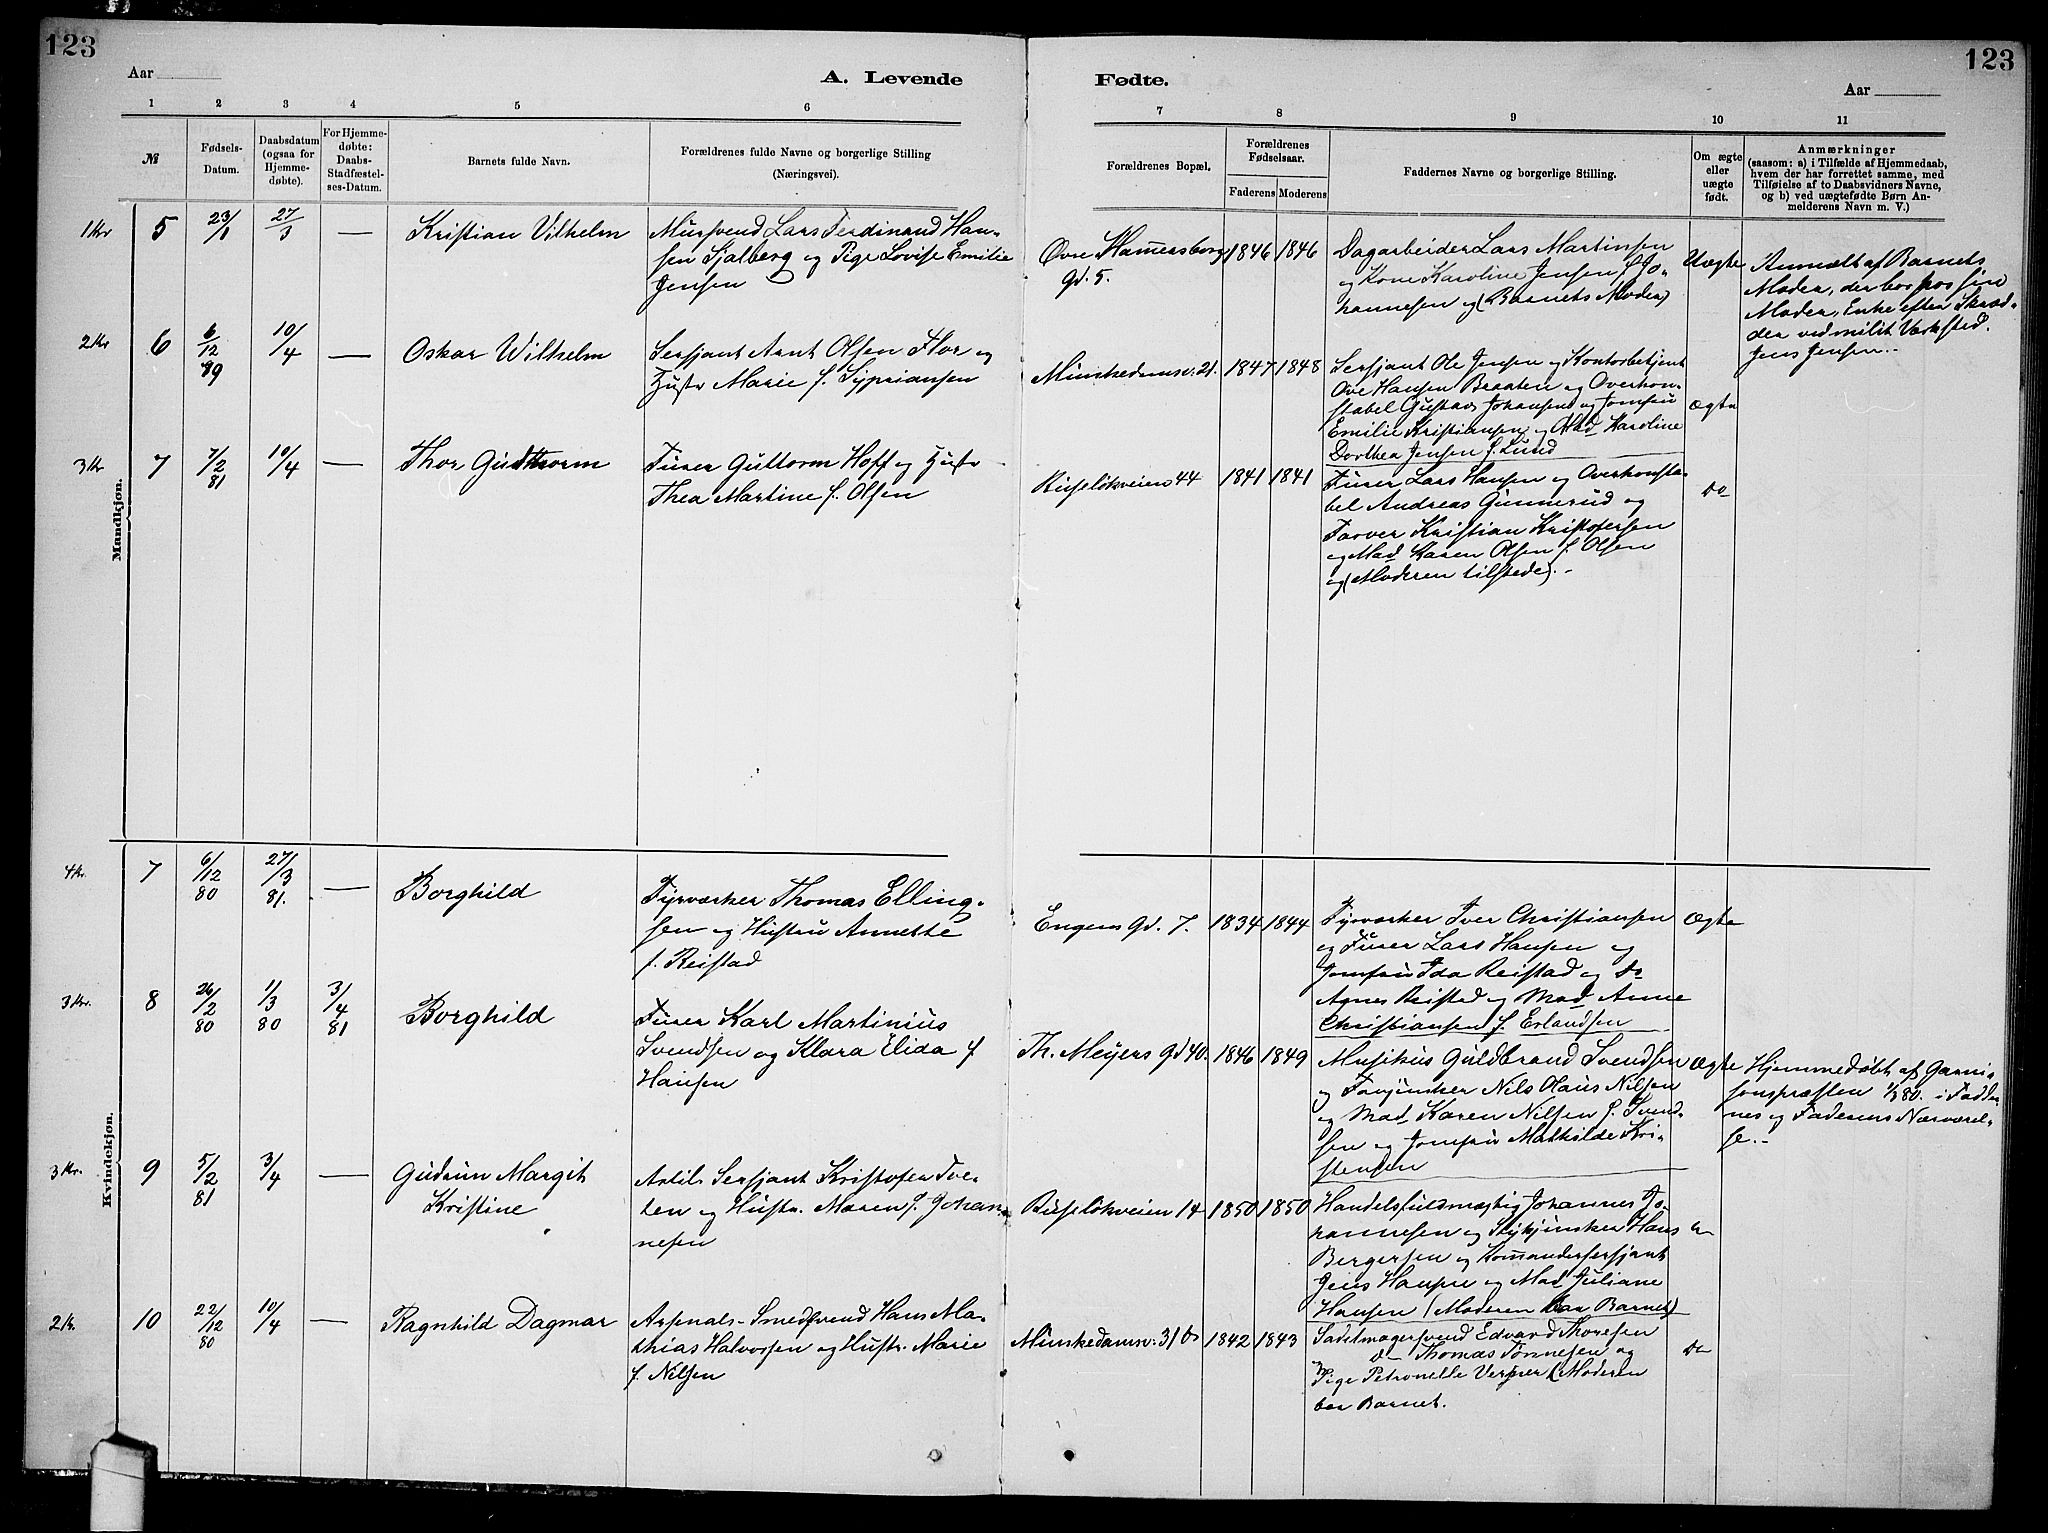 123
123
Aar
A. Levende
Fødte.
Aar
1 2 3 4 5 6 7 8 9 10 11
№
Fødsels-
Datum.
Daabsdatum
(ogsaa for
Hjemme-
døbte).
For Hjemme-
døbte:
Daabs-
Stadfæstel-
ses-Datum.
Barnets fulde Navn.
Forældrenes fulde Navne og borgerlige Stilling
(Næringsvei).
Forældrenes Bopæl.
Forældrenes
Fødselsaar.
Faderens Moderens
Faddernes Navne og borgerlige Stilling.
Om ægte
eller
uægte
født.
Anmærkninger
(saasom: a) i Tilfælde af Hjemmedaab,
hvem der har forrettet samme, med
Tilføielse af to Daabsvidners Navne,
og b) ved uægtefødte Børn An-
melderens Navn m. V.)
Mandkjøn.
1 Kr 5 23/1 27/3 — Kristian Vilhelm
Mursvend Lars Ferdinand Han-
sen Sjølberg og Pige Lovise Emilie
Jensen
Øvre Hamersborg
Gd. 5.
1846 1846
Dagarbeider Lars Martinsen
og Kone Karoline Jensen f. Jo-
hannesen og (Barnets Moder)
Uægte
Anmeldt af Barnets
Moder, der bor hos sin
Moder, Enke efter Skræd-
der ved milit Værksted.
Jens Jensen.-
2 Kr 6 6/12 89 10/4 — Oskar Wilhelm
Sersjant Arnt Olsen Flor og
Hustr Marie f. Sypriansen
Munkedamsv. 21. 1847 1848
Sersjant Ole Jensen og Kontorbetjent
Ove Hansen Braaten og Overkon-
stabel Gustav Johansen og Jomfru
Emilie Kristiansen og Mad Karoline
Dorthea Jensen f. Lund
Ægte
3 Kr 7 7/2 81 10/4 — Thor Gudthorm
Furer Guttorm Hoff og Hustr
Thea Martine f. Olsen
Ruseløkveien 44 1841 1841
Furer Lars Hansen og Overkonsta-
bel Andreas Gunnerud og
Farver Kristian Kristofersen
og Mad. Karen Olsen f. Olsen
og (Moderen tilstede).-
Do
Kvindekjøn.
4 Kr. 7 6/12 80 27/3 81. — Borghild
Fyrværker Thomas Elling-
sen og Hustru Annette
f. Reistad
Engens Gd. 7. 1834 1844
Fyrværker Iver Christiansen
og Furer Lars Hansen og
Jomfru Ida Reistad og Do
Agnes Reistad og Mad Anne
Christiansen f. Erlandsen
Ægte
3 Kr. 8 26/2 80 1/3 80 3/4 81 Borghild
Furer Karl Martinius
Svendsen og Klara Elida f
Hansen
Th. Meyers Gd 40. 1846 1849
Musikus Guldbrand Svendsen
og Nils Olaus Nilsen
og Mad Karen Nilsen f. Svend-
sen og Jomfru Mathilde Kri-
stensen
Ægte
Hjemmedøbt af Garni-
sonspræsten 1/3 80. i Fadder-
nes og Faderens Nærværel-
se.-
3 Kr. 9 5/2 81 3/4 — Gudrun Margit
Kristine
Artil. Sersjant Kristofer Tve-
ten og Hustr. Maren f. Johan-
nesen
Ruseløkveien 14 1850 1850
Handelsfuldmægtig Johannes Jo-
hannesen og Stykjunker Hans
Bergersen og Komandersersjant
Jens Hansen og Mad Juliane
Hansen (Moderen bar Barnet)
2 Kr. 10 22/12 80 10/4 — Ragnhild Dagmar
Arsenals-Smedsvend Hans Ma-
thias Halvorsen og Hustr. Marie
f. Nilsen
Munkedamsv. 31 b 1842 1843
Sadelmagersvend Edvard Thoresen
Do Thomas Tønnesen og
Pige Petronelle Verpner (Moderen
bar Barnet.
Do